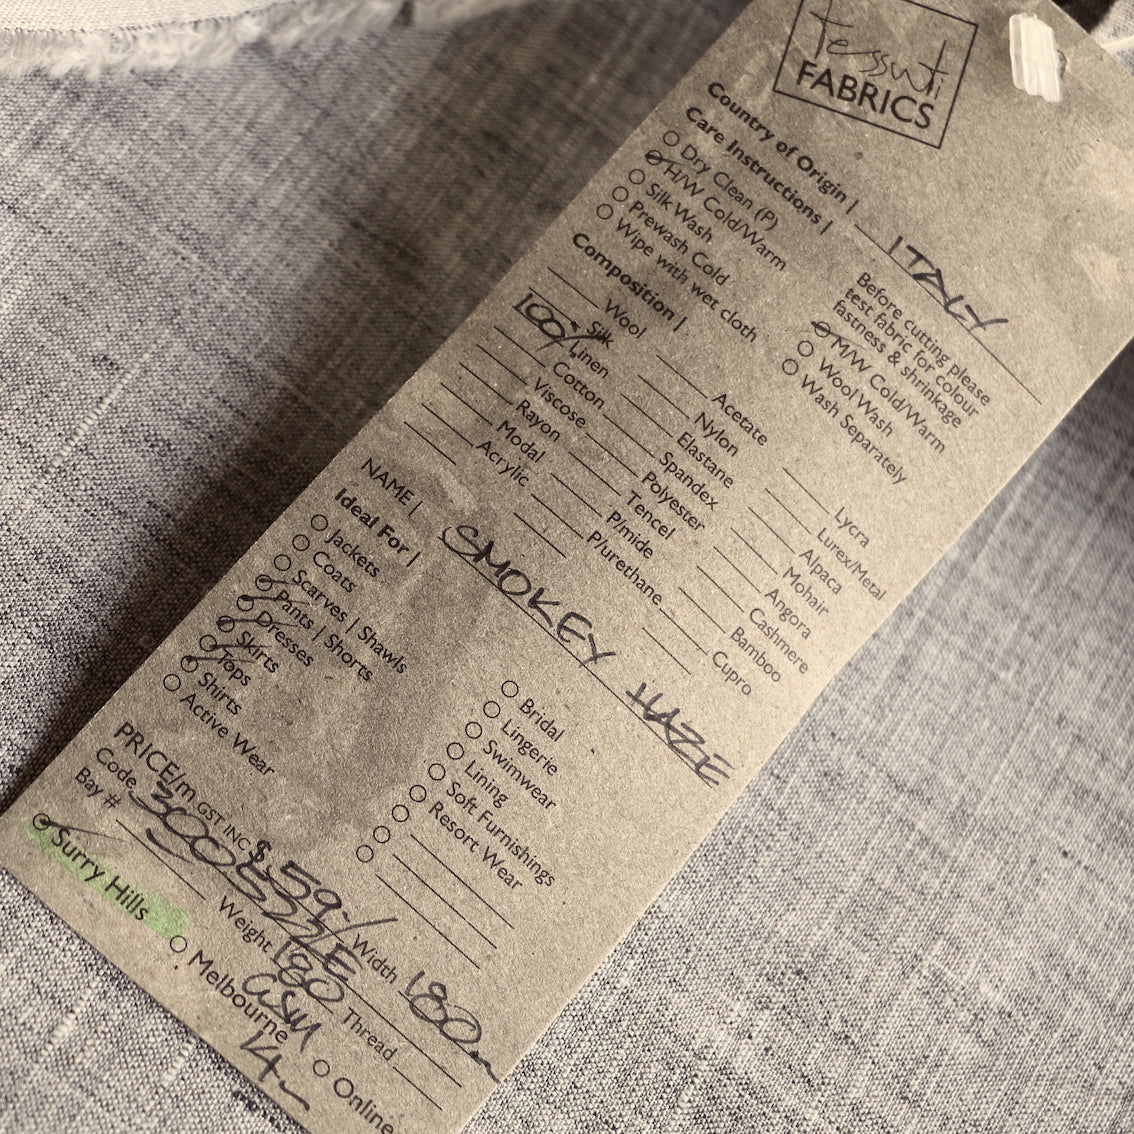 tessuti
FABRICS
Country of Origin | ITALY
Care Instructions |
Dry Clean (P)
H/W Cold/Warm
Silk Wash
Prewash Cold
Wipe with wet cloth
Before cutting please
test fabric for colour
fastness & shrinkage
M/W Cold/Warm
Wool Wash
Wash Separately
Composition |
Wool
Silk
100% Linen
Cotton
Viscose
Rayon
Modal
Acrylic
Acetate
Nylon
Elastane
Spandex
Polyester
Tencel
P/mide
P/urethane
Lycra
Lurex/Metal
Alpaca
Mohair
Angora
Cashmere
Bamboo
Cupro
NAME | SMOKEY HAZE
Ideal For |
Jackets
Coats
Scarves | Shawls
Pants | Shorts
Dresses
Skirts
Tops
Shirts
Active Wear
Bridal
Lingerie
Swimwear
Lining
Soft Furnishings
Resort Wear
PRICE/m GST INC $59-/ Width 180
Code
Bay # Weight 180 GSM Thread
Surry Hills Melbourne Online
14